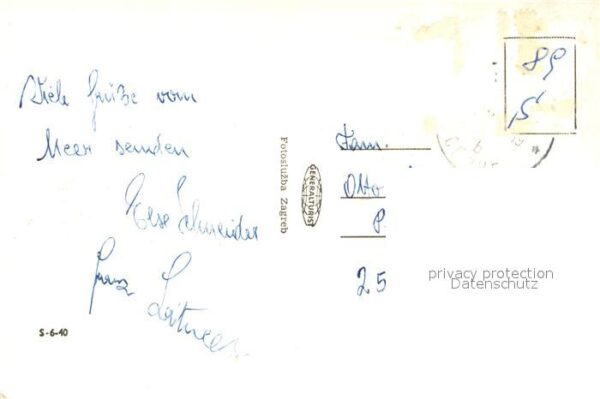 Viele Grüße vom
Meer senden
Else Schneider
Franz
S-6-40
Fotoslužba Zagreb
GENERALTURIST
Fam.
Otto
P.
25
privacy protection
Datenschutz